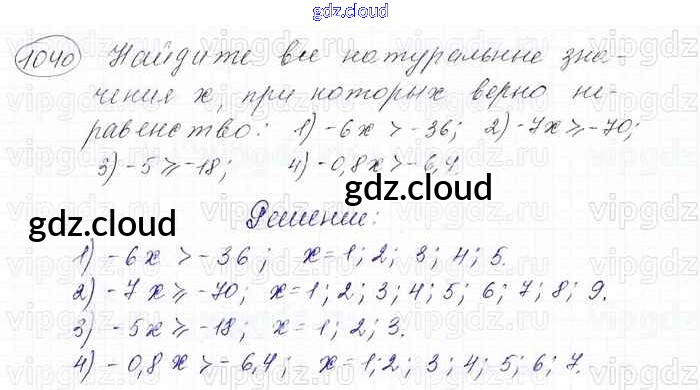 gdz.cloud
1040 Найдите все натуральные зна-
чения x, при которых верно не-
равенство: 1) -6x > -36; 2) -7x ⩾ -70;
3) -5 ⩾ -18; 4) -0,8x > -6,4.
gdz.cloud
gdz.cloud
Решение:
1) -6x > -36; x = 1; 2; 3; 4; 5.
2) -7x ⩾ -70; x = 1; 2; 3; 4; 5; 6; 7; 8; 9.
3) -5x ⩾ -18; x = 1; 2; 3.
4) -0,8x ⩾ -6,4; x = 1; 2; 3; 4; 5; 6; 7.